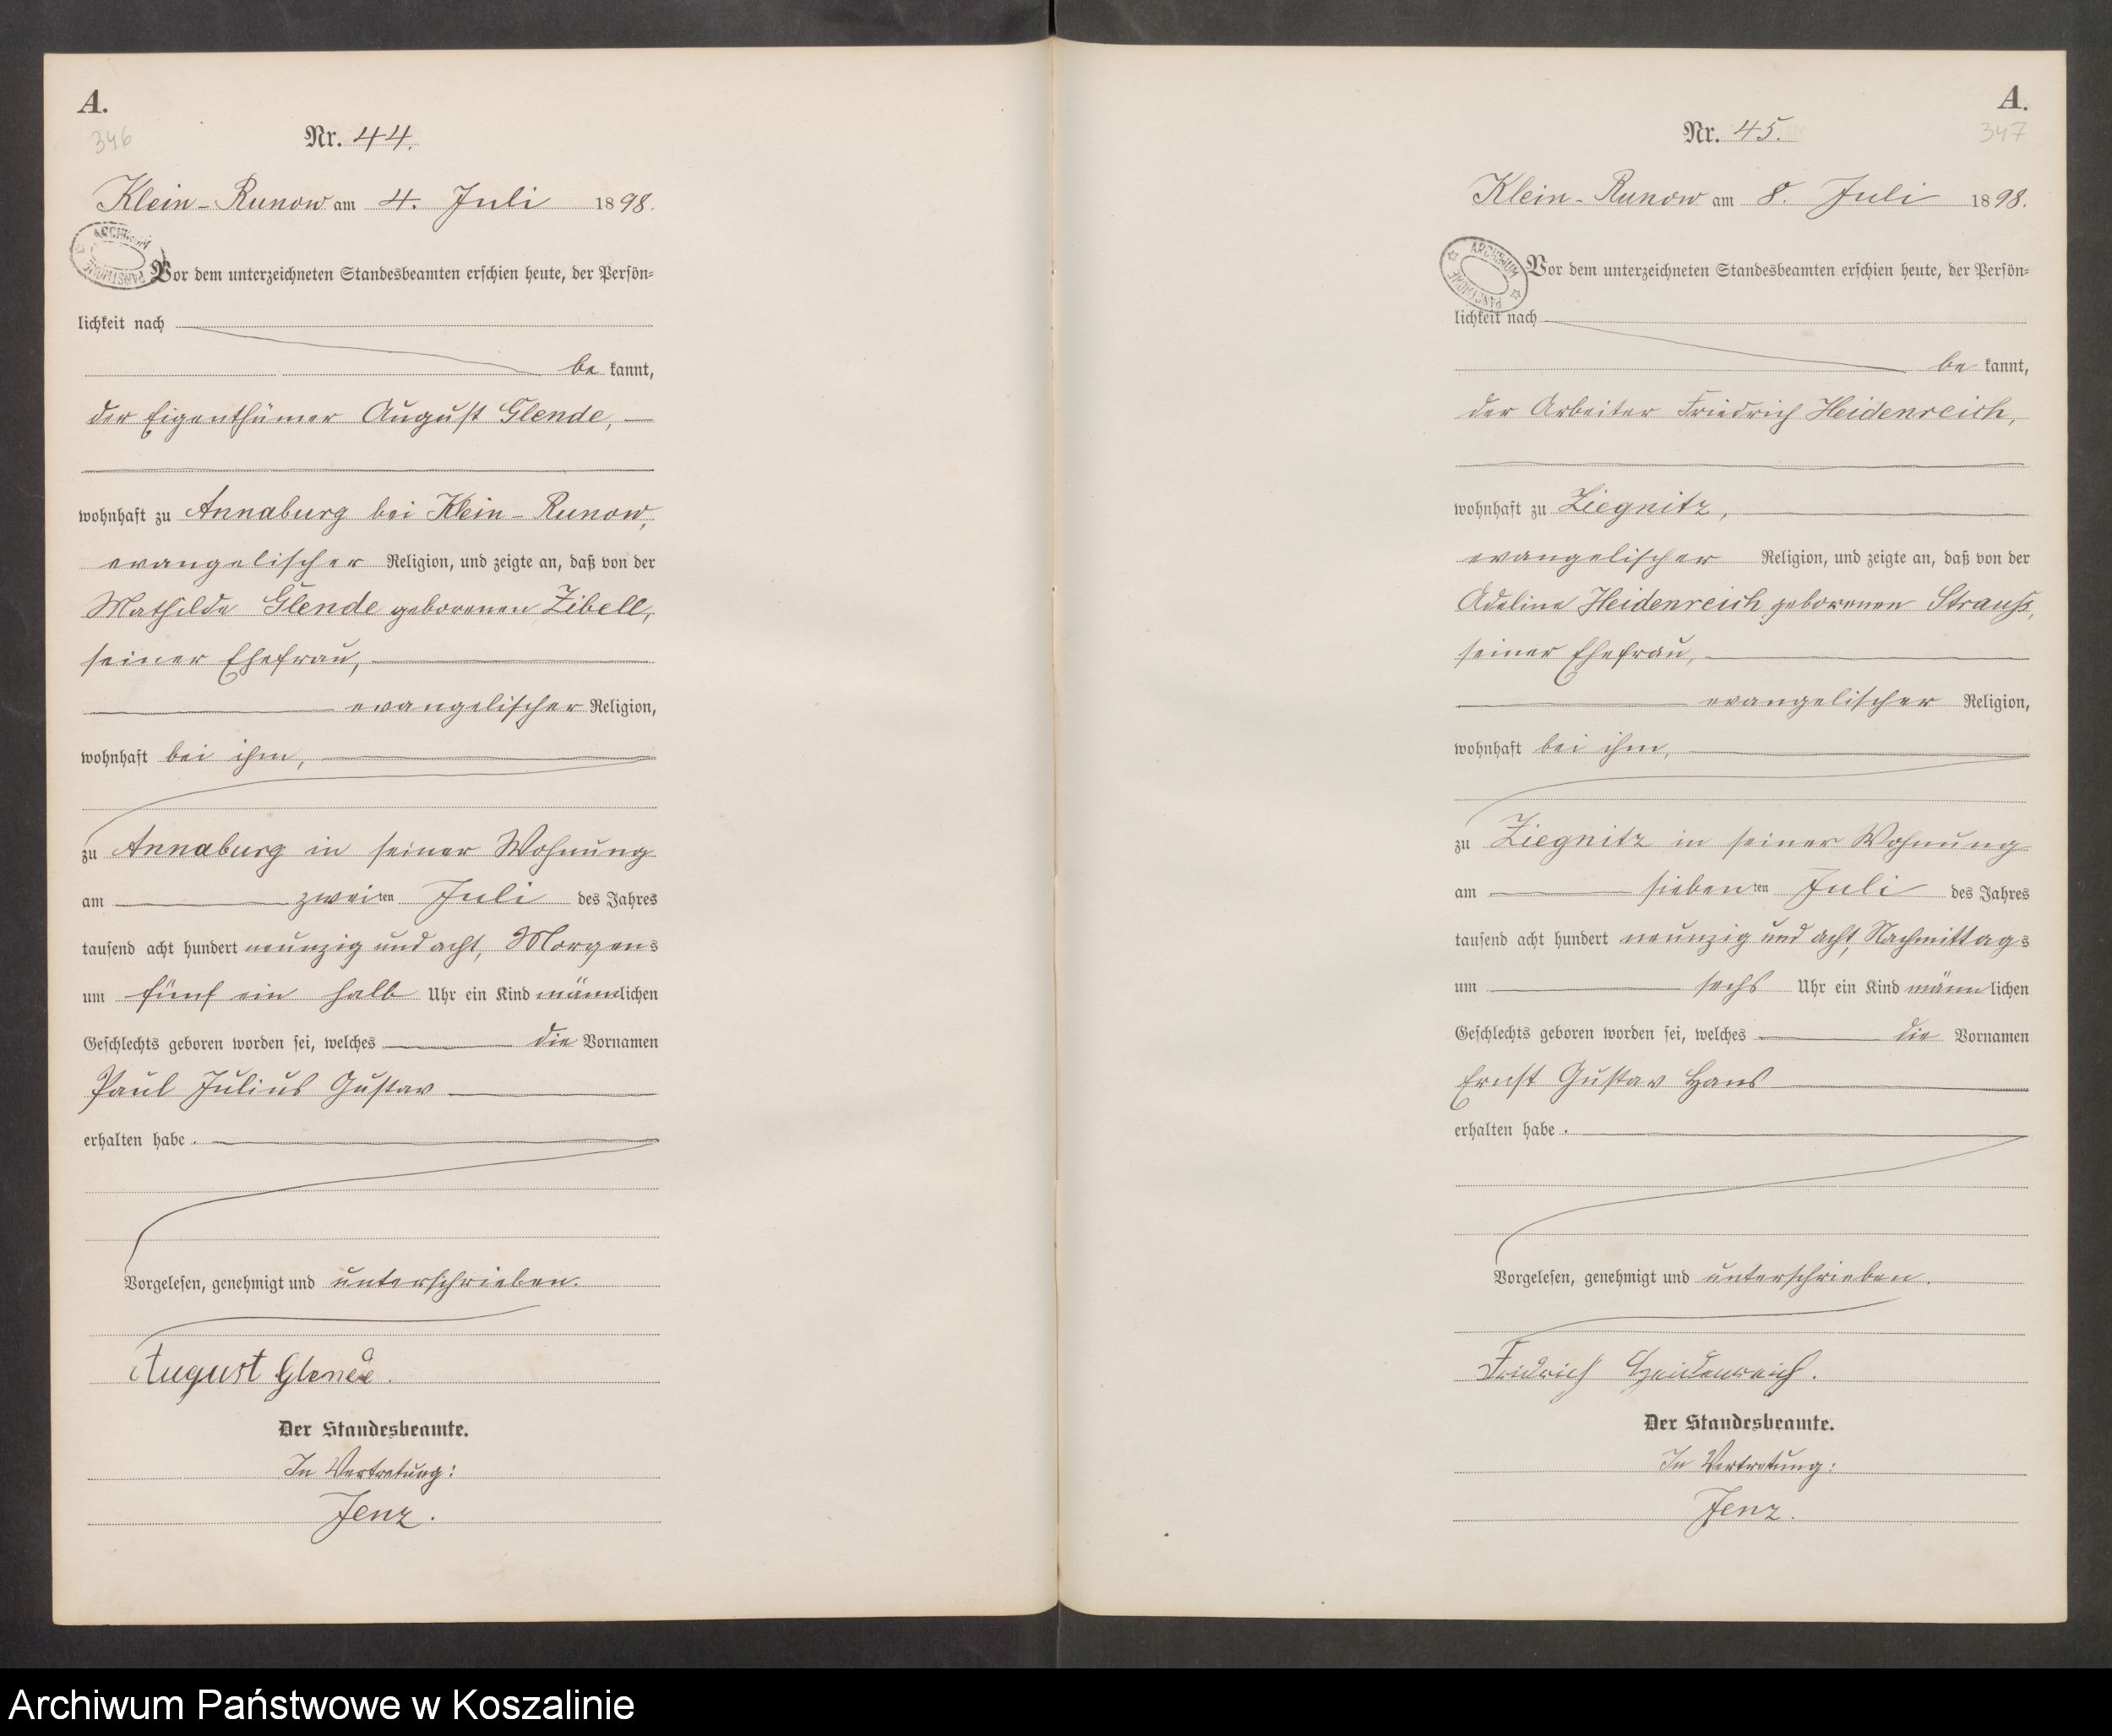 A.
346
Nr. 44.
Klein-Runow am 4. Juli 1898.
ARCHIWUM PAŃSTWOWE
Vor dem unterzeichneten Standesbeamten erschien heute, der Persön-
lichkeit nach
be kannt,
der Eigenthümer August Glende,
wohnhaft zu Annaburg bei Klein-Runow,
evangelischer Religion, und zeigte an, daß von der
Mathilde Glende geborenen Zibell,
seiner Ehefrau,
evangelischer Religion,
wohnhaft bei ihm,
zu Annaburg in seiner Wohnung
am zweiten Juli des Jahres
tausend acht hundert neunzig und acht, Morgens
um fünf ein halb Uhr ein Kind männlichen
Geschlechts geboren worden sei, welches die Vornamen
Paul Julius Gustav
erhalten habe.
Vorgelesen, genehmigt und unterschrieben.
August Glende.
Der Standesbeamte.
In Vertretung:
Jenz.
A.
347
Nr. 45.
Klein-Runow am 8. Juli 1898.
ARCHIWUM PAŃSTWOWE
Vor dem unterzeichneten Standesbeamten erschien heute, der Persön-
lichkeit nach
be kannt,
der Arbeiter Friedrich Heidenreich,
wohnhaft zu Ziegnitz,
evangelischer Religion, und zeigte an, daß von der
Adeline Heidenreich geborenen Strauß,
seiner Ehefrau,
evangelischer Religion,
wohnhaft bei ihm,
zu Ziegnitz in seiner Wohnung
am siebenten Juli des Jahres
tausend acht hundert neunzig und acht, Nachmittags
um sechs Uhr ein Kind männlichen
Geschlechts geboren worden sei, welches die Vornamen
Ernst Gustav Hans
erhalten habe.
Vorgelesen, genehmigt und unterschrieben.
Fridrich Heidenreich.
Der Standesbeamte.
In Vertretung:
Jenz.
Archiwum Państwowe w Koszalinie